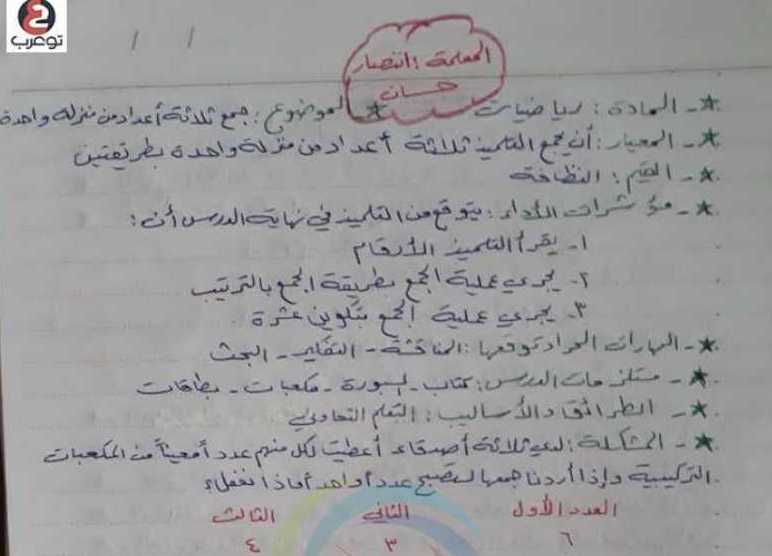 توعرب
/ /
المعلمة: انتصار
حسان
*- المادة: رياضيات * الموضوع: جمع ثلاثة أعداد من منزلة واحدة
*- المعيار: أن يجمع التلميذ ثلاثة أعداد من منزلة واحدة بطريقتين
*- القيم: النظافة
*- مؤشرات الأداء: يتوقع من التلميذ في نهاية الدرس أن:
١- يقرأ التلميذ الأرقام
٢- يجري عملية الجمع بطريقة الجمع بالترتيب
٣- يجري عملية الجمع بتكوين عشرة
*- المهارات المراد توقعها: المناقشة - التفكير - البحث
*- مستلزمات الدرس: كتاب - السبورة - مكعبات - بطاقات
*- الطرائق والأساليب: التعلم التعاوني
*- المشكلة: لدي ثلاثة أصدقاء أعطيت لكل منهم عدداً معيناً من المكعبات
التركيبية وإذا أردنا جمعها لتصبح عدداً واحداً ماذا نفعل؟
العدد الأول الثاني الثالث
٦ ٣ ٤